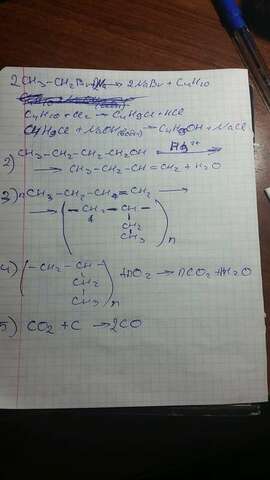 2CH3-CH2Br+2Na → 2NaBr + C4H10
C4H10 + Cl2 → C4H9Cl + HCl
C4H9Cl + NaOH(водн) → C4H9OH + NaCl
2) CH3-CH2-CH2-CH2OH →
→ CH3-CH2-CH=CH2 + H2O
3) nCH3-CH2-CH=CH2 →
→ (-CH2-CH-)n
CH2
CH3
4) (-CH2-CH-)n + → nCO2 + H2O
CH2
CH3
5) CO2 + C → 2CO